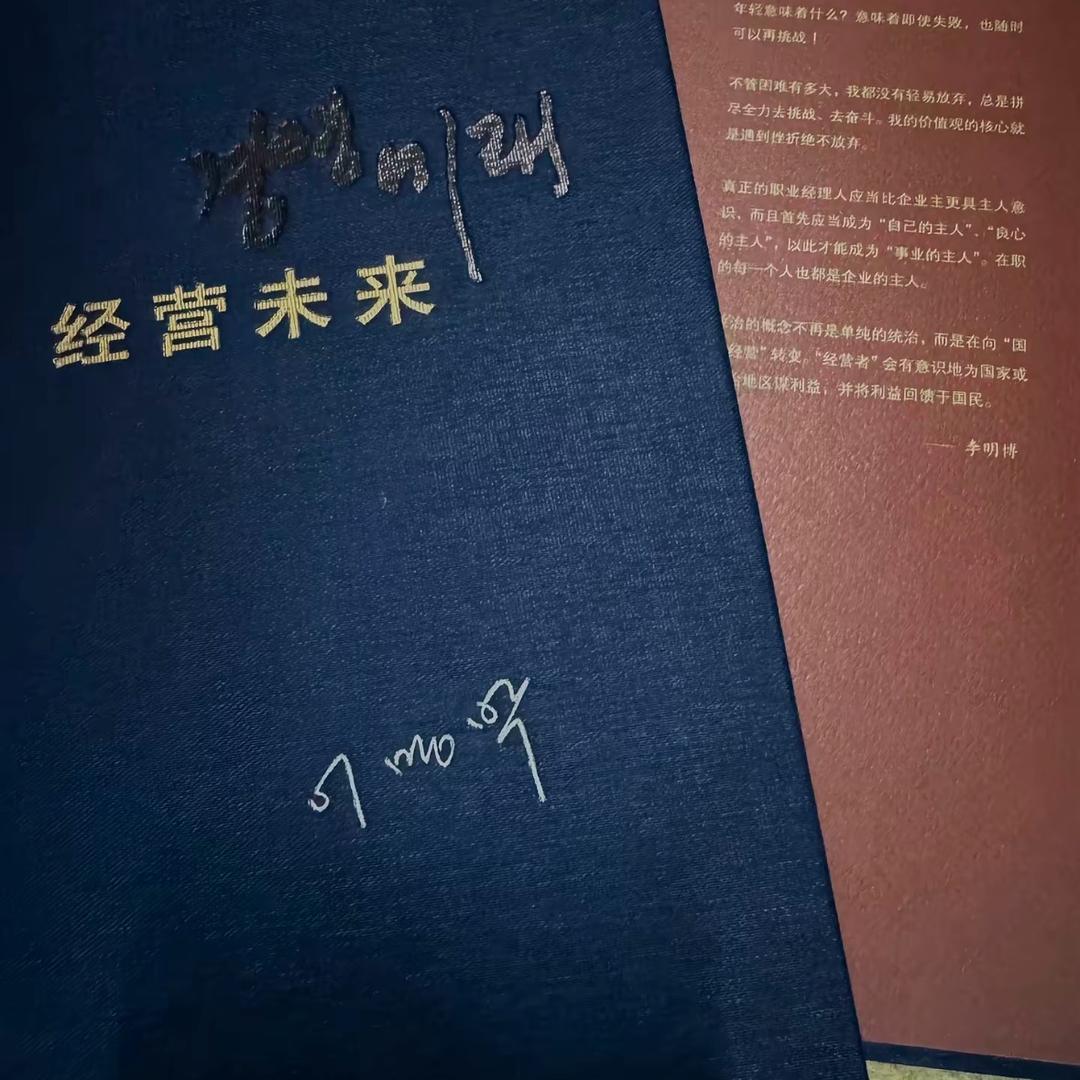 경영미래
经营未来
이명박
年轻意味着什么？意味着即使失败，也随时
可以再挑战！
不管困难有多大，我都没有轻易放弃，总是拼
尽全力去挑战、去奋斗。我的价值观的核心就
是遇到挫折绝不放弃。
真正的职业经理人应当比企业主更具主人意
识，而且首先应当成为“自己的主人”、“良心
的主人”，以此才能成为“事业的主人”。在职
的每一个人也都是企业的主人。
治的概念不再是单纯的统治，而是在向“国
经营”转变。“经营者”会有意识地为国家或
地区谋利益，并将利益回馈于国民。
—— 李明博